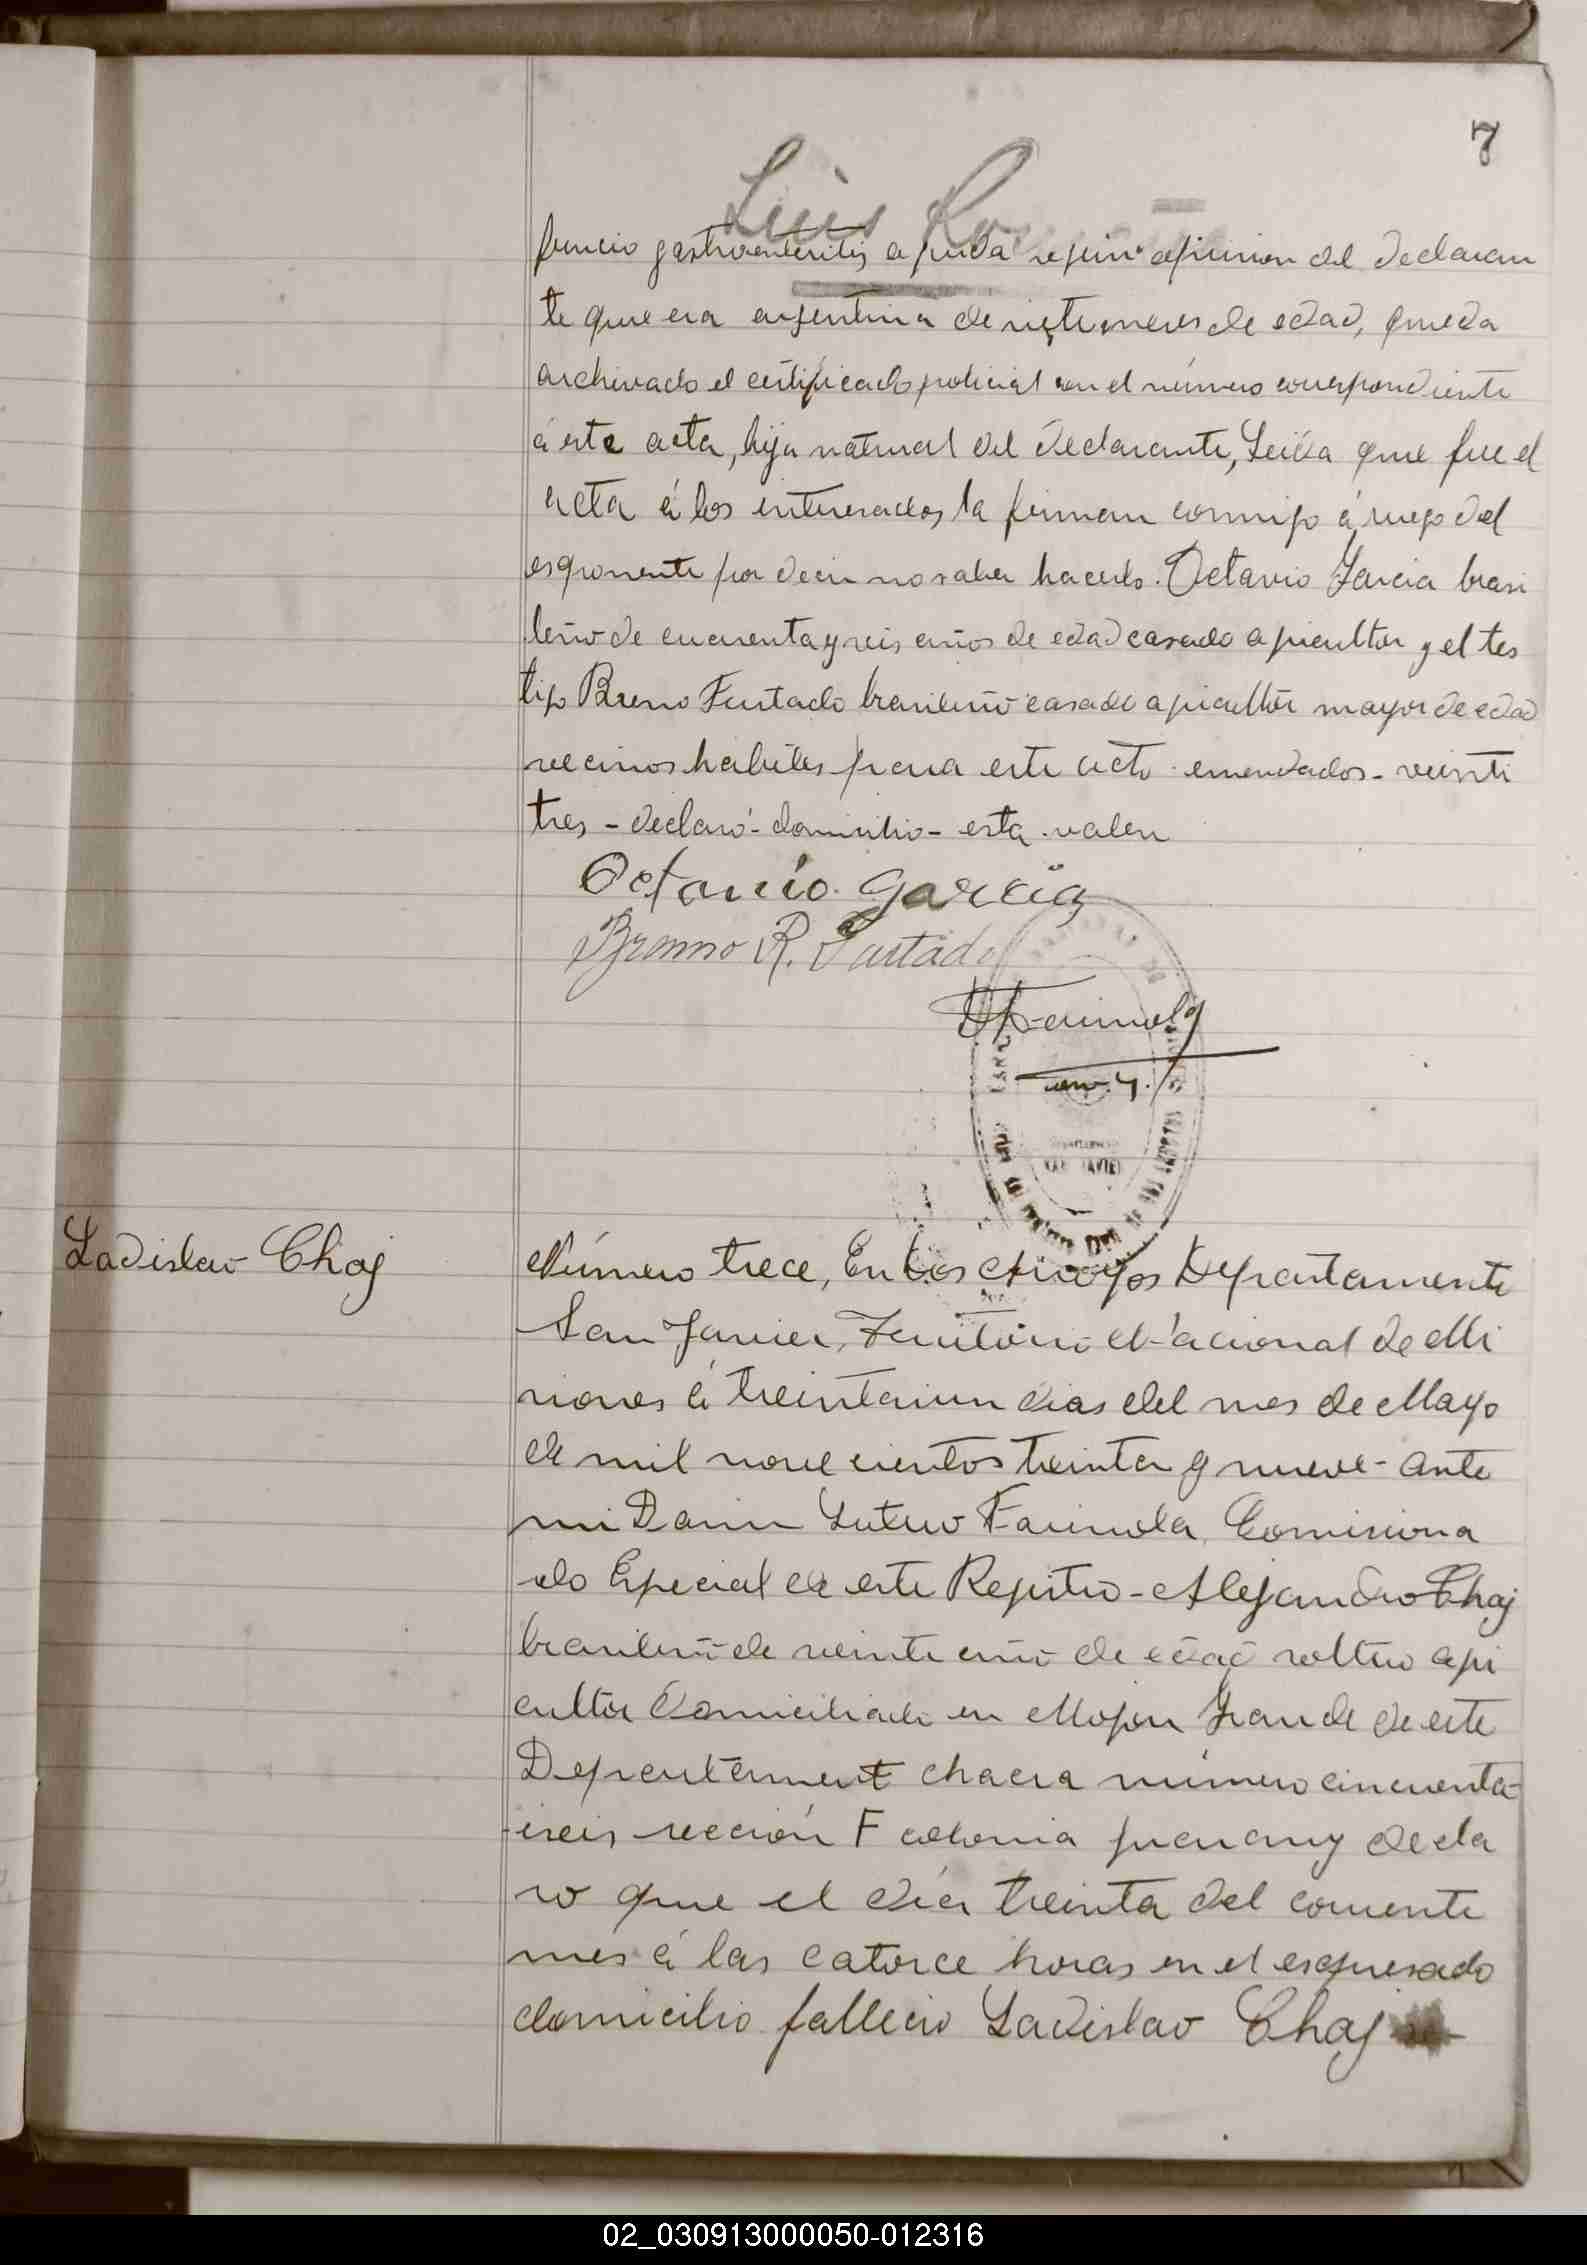 7
Luis
funcio gastroenteritis aguda segun opinion del declaran
te que era argentina de siete meses de edad, queda
archivado el certificado policial con el número correspondiente
á esta acta, hija natural del declarante, Leida que fue el
acta á los interesados la firman conmigo á ruego del
esponente por decir no saber hacerlo. Octavio Garcia brasi
leño de cuarenta y seis años de edad casado agricultor y el tes
tigo Breno Furtado brasileño casado agricultor mayor de edad
vecinos habiles para este acto. emendados - veinti
tres - declaró - domicilio - esta. valen
Octavio Garcia
R. Furtado
Farinola
SAN JAVIER
Ladislao Chaj
Número trece, En Los Arroyos Departamento
San Javier, Territorio Nacional de Mi
siones á treintaiun dias del mes de Mayo
de mil novecientos treinta y nueve - ante
mi Dario Lutero Farinola, Comisiona
do Especial de este Registro - Alejandro Chaj
brasileño de veinte año de edad soltero agri
cultor domiciliado en Mojon Grande de este
Departament chacra número cincuenta-
iseis sección F colonia guarany decla
ro que el día treinta del corriente
mes á las catorce horas en el espresado
domicilio fallecio Ladislao Chaj
02_030913000050-012316